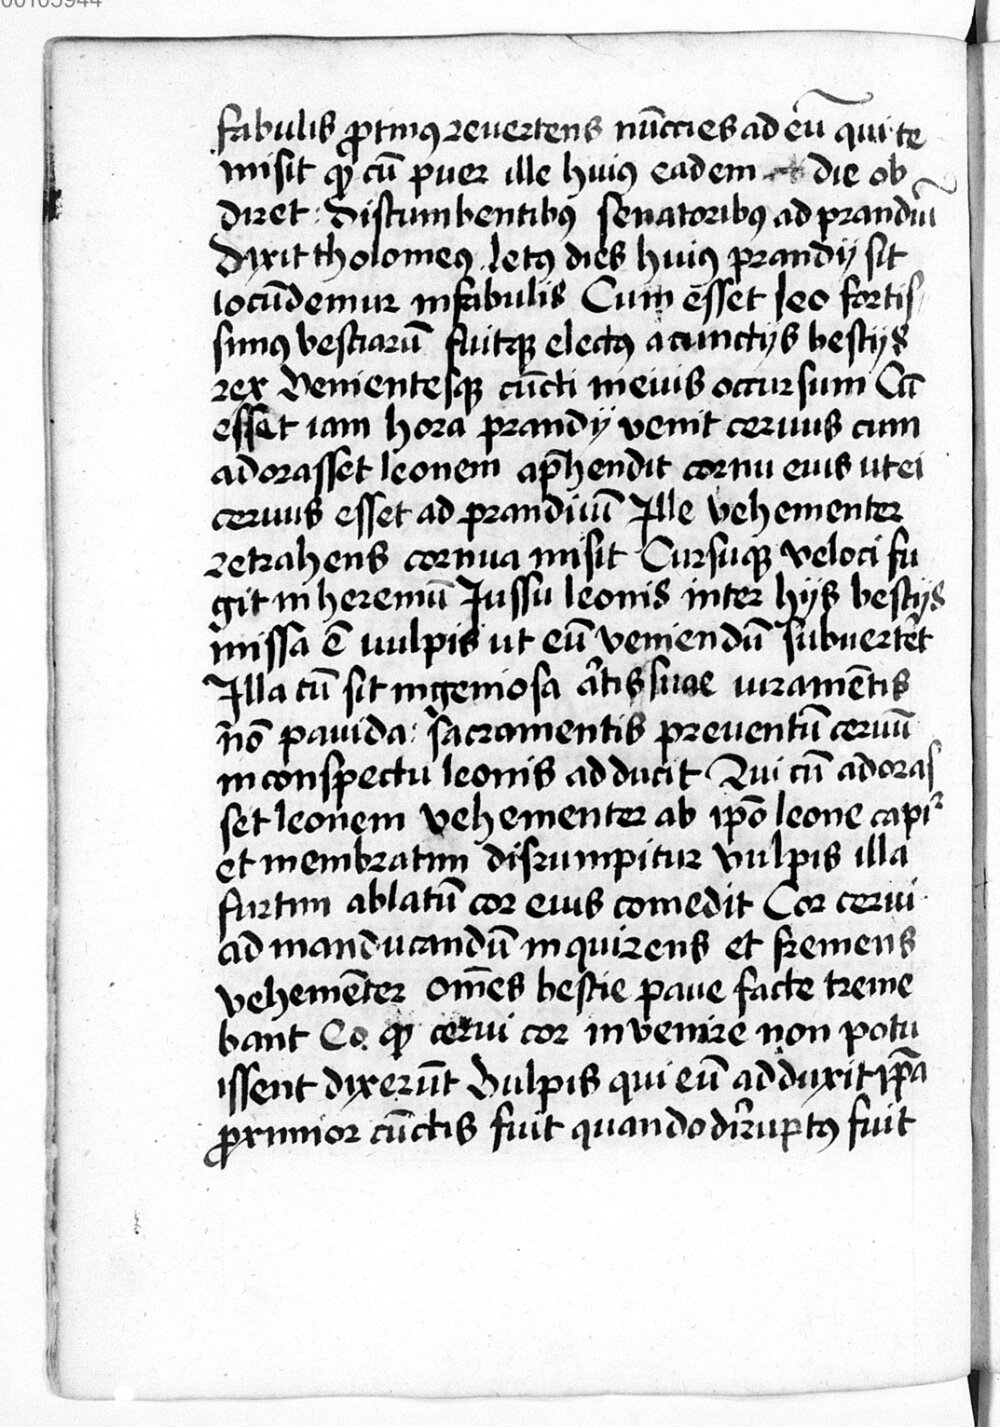 00105944
fabulis ꝓtinꝰ reuertens nūccies ad eū qui te
misit qꝫ cū puer ille huiꝰ eadem die ob
diret: Discumbentibꝰ senatoribꝰ ad prandiū
Dixit tholomeꝰ letꝰ dies huiꝰ prandij sit
iocūdemur in fabulis Cum esset leo fortis
simꝰ bestiarū fuitqꝫ electꝰ a cunctijs bestijs
rex Venientesqꝫ cūcti in eius occursum Cū
esset iam hora prandij venit ceruus cum
adorasset leonem ap̄hendit cornu eius ut ei
ceruus esset ad prandiuū Ille vehementer
retrahens cornua misit Cursuqꝫ veloci fu
git in heremū Iussu leonis inter hijs bestijs
missa ē uulpis ut eū veniendū subuerteret
Illa cū sit ingeniosa artis suae iuramētis
nō pauida: sacramentis preuentū ceruū
in conspectu leonis adducit Qui cū adoras
set leonem vehementer ab ip̄o leone capit᷑
et membratim disrumpitur vulpis illa
furtim ablatū cor eius comedit Cor cerui
ad manducandū inquirens et fremens
vehemēter om̄es bestie paue facte treme
bant Eo qꝫ cerui cor invenire non potu
issent dixerūt Vulpis qui eū adduxit ip̄a
ꝓximior cūctis fuit quando diruptꝰ fuit